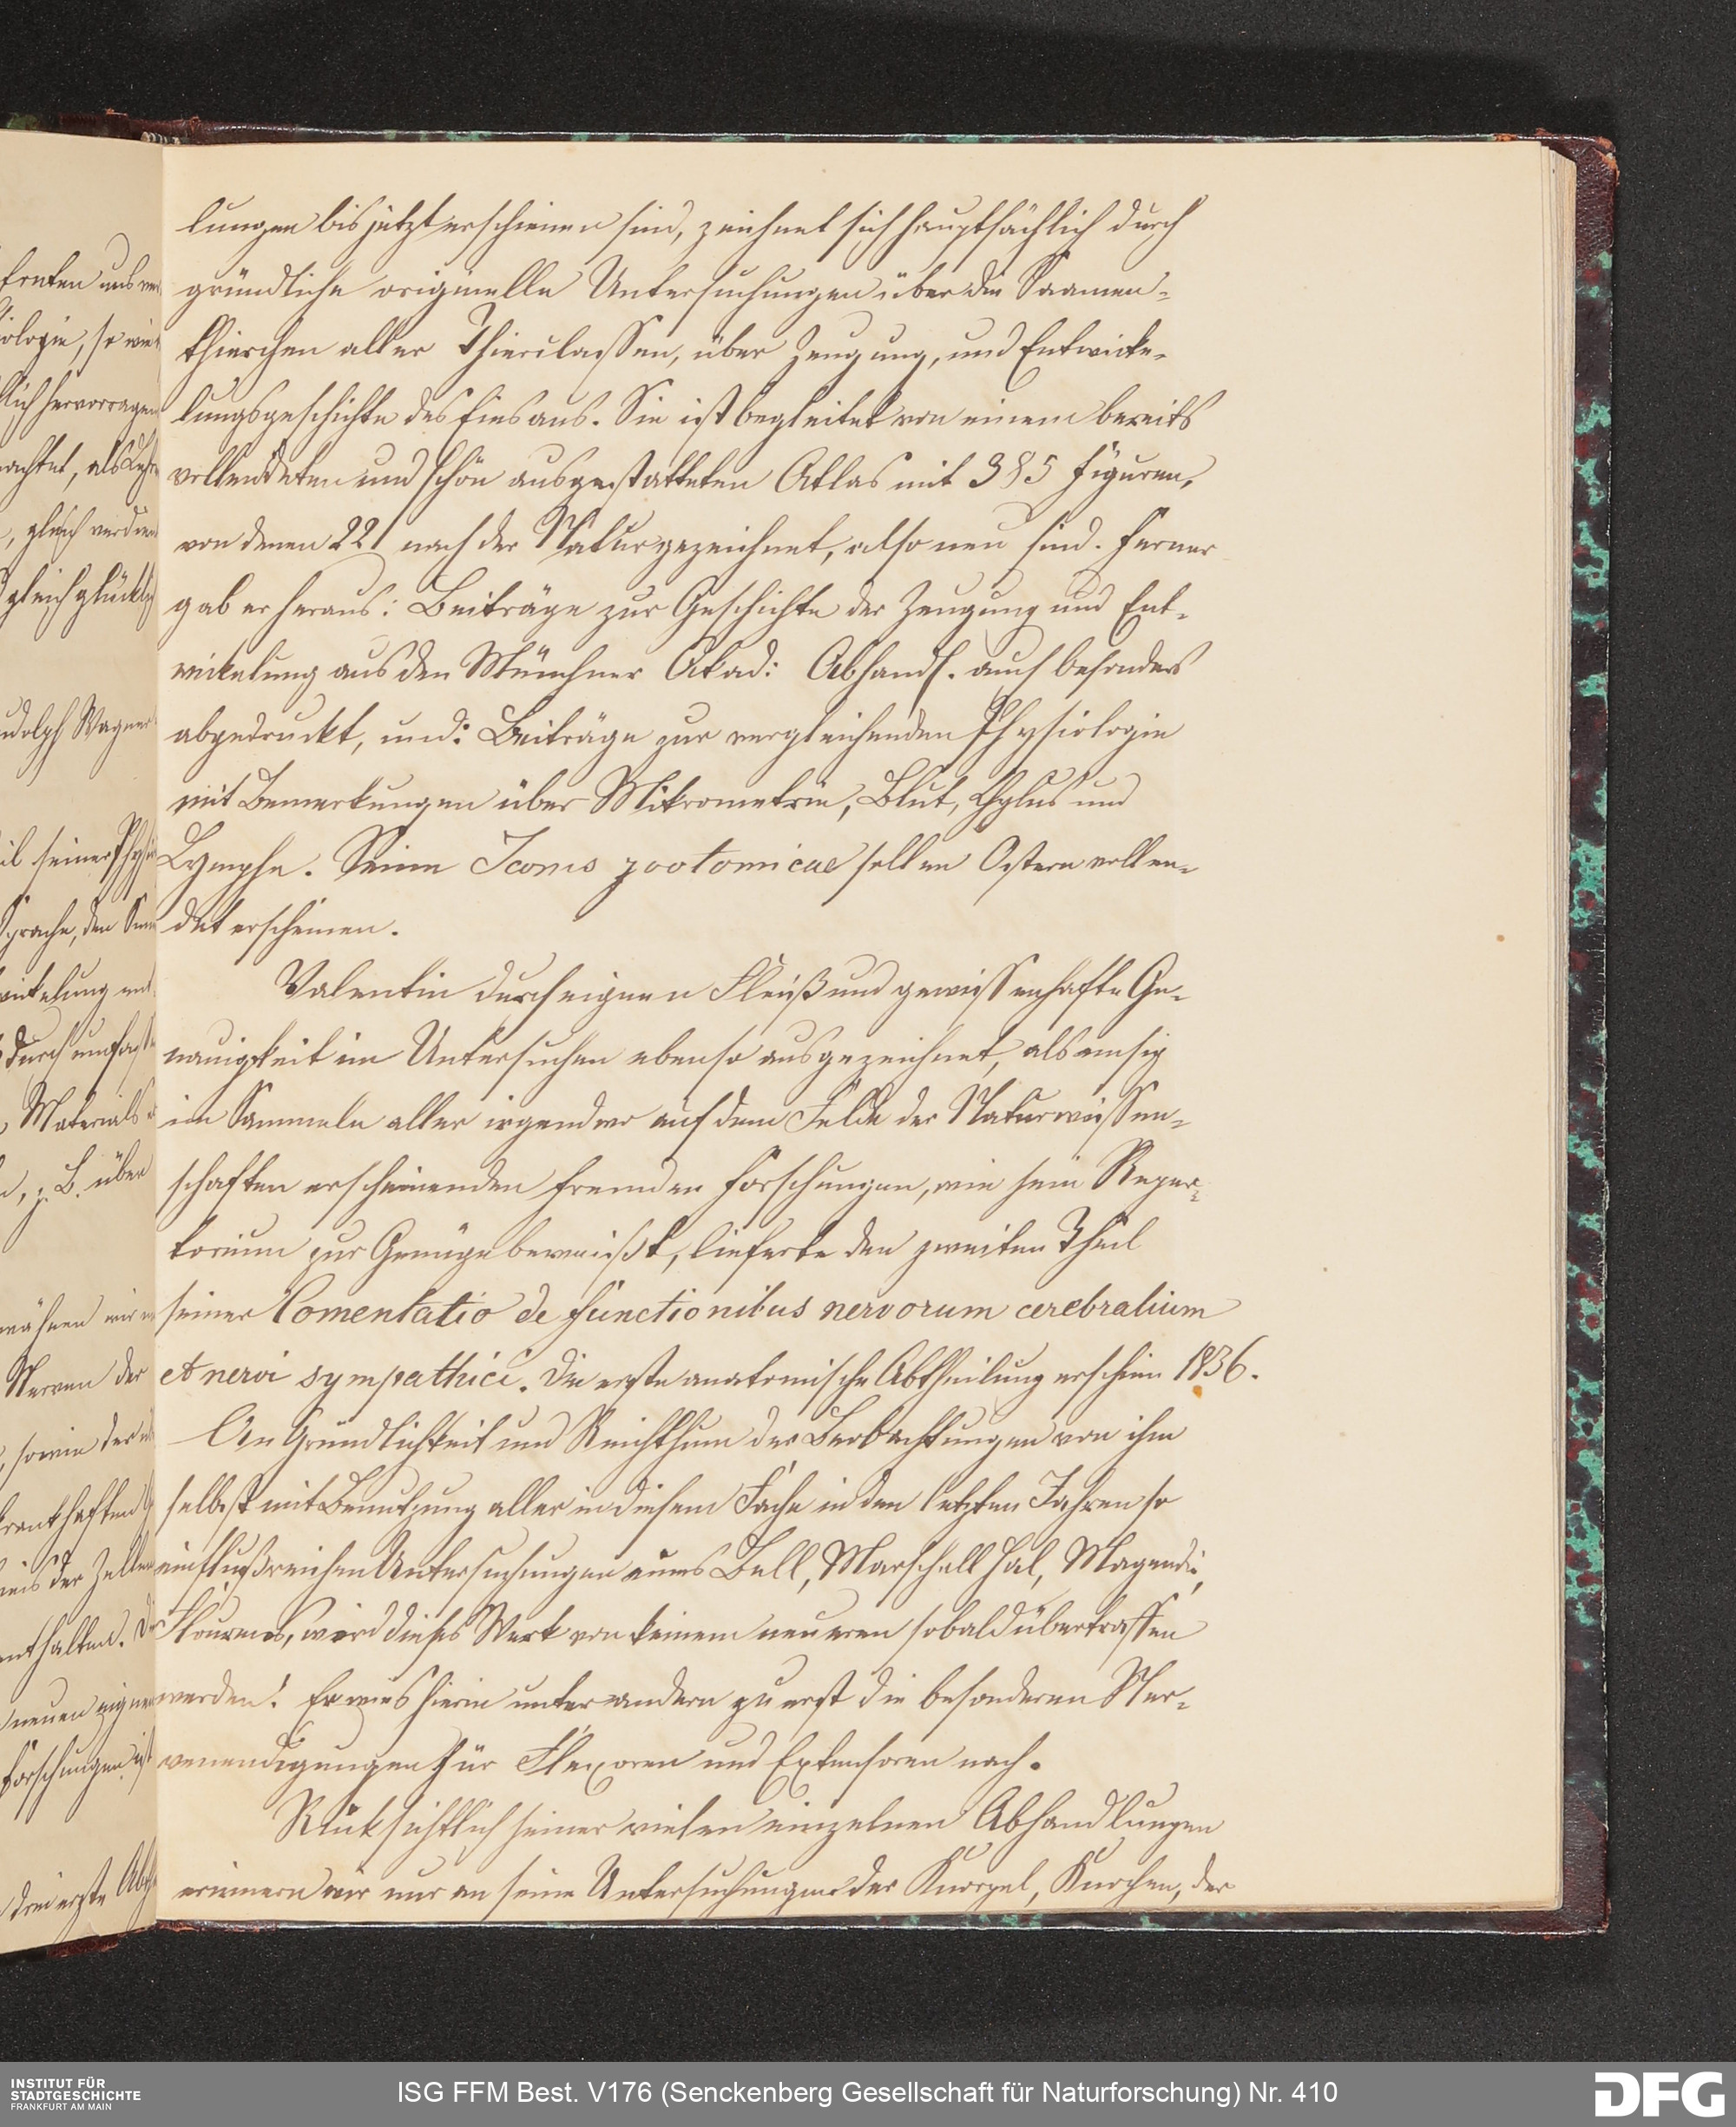 lungen bis jetzt erschienen sind, zeichnet sich hauptsächlich durch
gründliche originelle Untersuchungen über die Saamen-
thierchen aller Thierclassen, über Zeugung, und Entwicke-
lungsgeschichte des Eies aus. Sie ist begleitet von einem bereits
vollendeten und schön ausgestatteten Atlas mit 385 Figuren,
von denen 221 nach der Natur gezeichnet, also neu sind. Ferner
gab er heraus: Beiträge zur Geschichte der Zeugung und Ent-
wickelung aus den Münchner Akad: Abhandl. auch besonders
abgedruckt, und: Beiträge zur vergleichenden Physiologie
mit Bemerkungen über Mikrometrie, Blut, Chylus und
Lymphe. Seine Icones zootomicae sollen Ostern vollen-
det erscheinen.
Valentin durch eignen Fleiß und gewissenhafte Ge-
nauigkeit im Untersuchen ebenso ausgezeichnet, als emsig
im Sammeln aller irgendwo auf dem Felde der Naturwissen-
schaften erscheinenden fremden Forschungen, wie sein Reper-
torium zur Genüge beweißt, lieferte den zweiten Theil
seiner Comentatio de functionibus nervorum cerebralium
et nervi sympathici. Die erste anatomische Abtheilung erschien 1836.
An Gründlichkeit und Reichthum der Beobachtungen von ihm
selbst mit Benutzung aller in diesem Fache in den letzten Jahren so
einflußreichen Untersuchungen eines Bell, Marschall Hal, Magendie,
Flourens, wird dieses Werk von keinem neueren sobald übertroffen
werden! Er wies hierin unter andern zu erst die besonderen Ner-
venendigungen für Flexoren und Extensoren nach.
Rücksichtlich seiner vielen einzelnen Abhandlungen
erinnern wir nur an seine Untersuchungen der Knorpel, Knochen, der
INSTITUT FÜR
STADTGESCHICHTE
FRANKFURT AM MAIN
ISG FFM Best. V176 (Senckenberg Gesellschaft für Naturforschung) Nr. 410
DFG